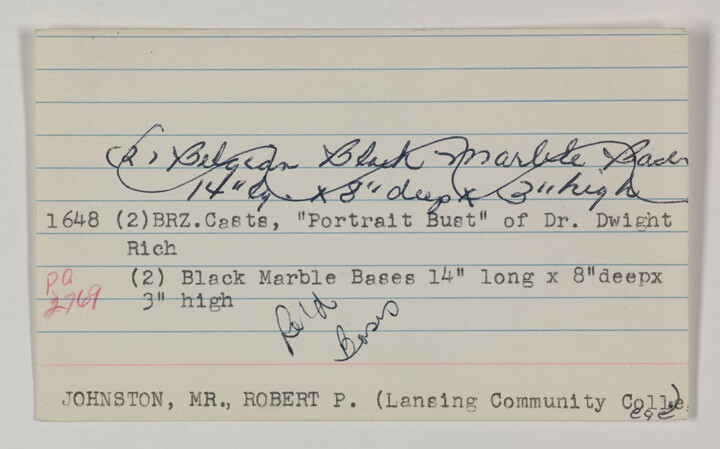 (2) Belgian Black Marble Bases
14" lg. x 8" deep x 3" high
1648 (2)BRZ.Casts, "Portrait Bust" of Dr. Dwight
Rich
(2) Black Marble Bases 14" long x 8"deepx
3" high
2769
Bases
JOHNSTON, MR., ROBERT P. (Lansing Community College)